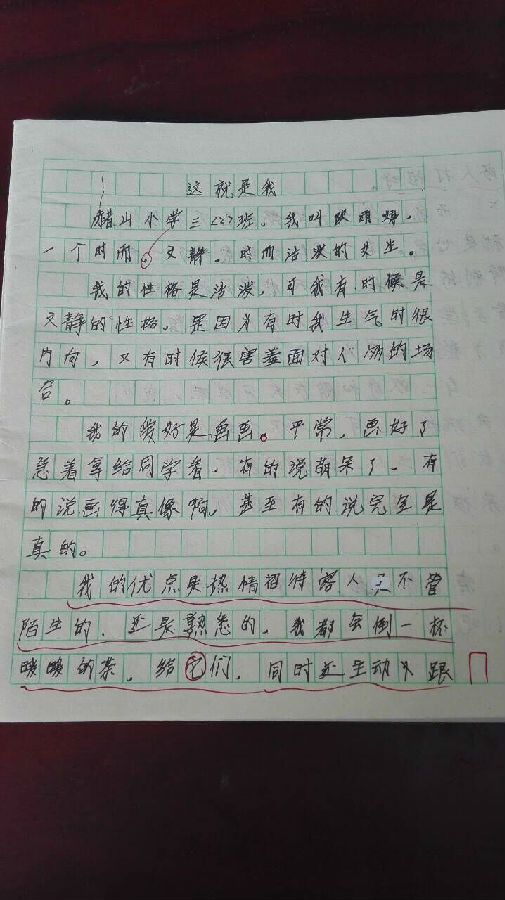 这就是我
山小学三(2)班。我叫
一个时而文静。时而活泼的女生。
我的性格是活泼，可我有的候是
文静的性格。是因为有时我生气时很
内向，又有时候很害羞面对人的场
合。
我的爱好是画画。平常，画好了
急着拿给同学看。有的说萌呆了。有
的说画得真像啊。甚至有的说完全是
真的。
我的优点是热情招待客人不管
陌生的，还是熟悉的。我都会倒一杯
暖暖的茶。给它们。同时还主动跟